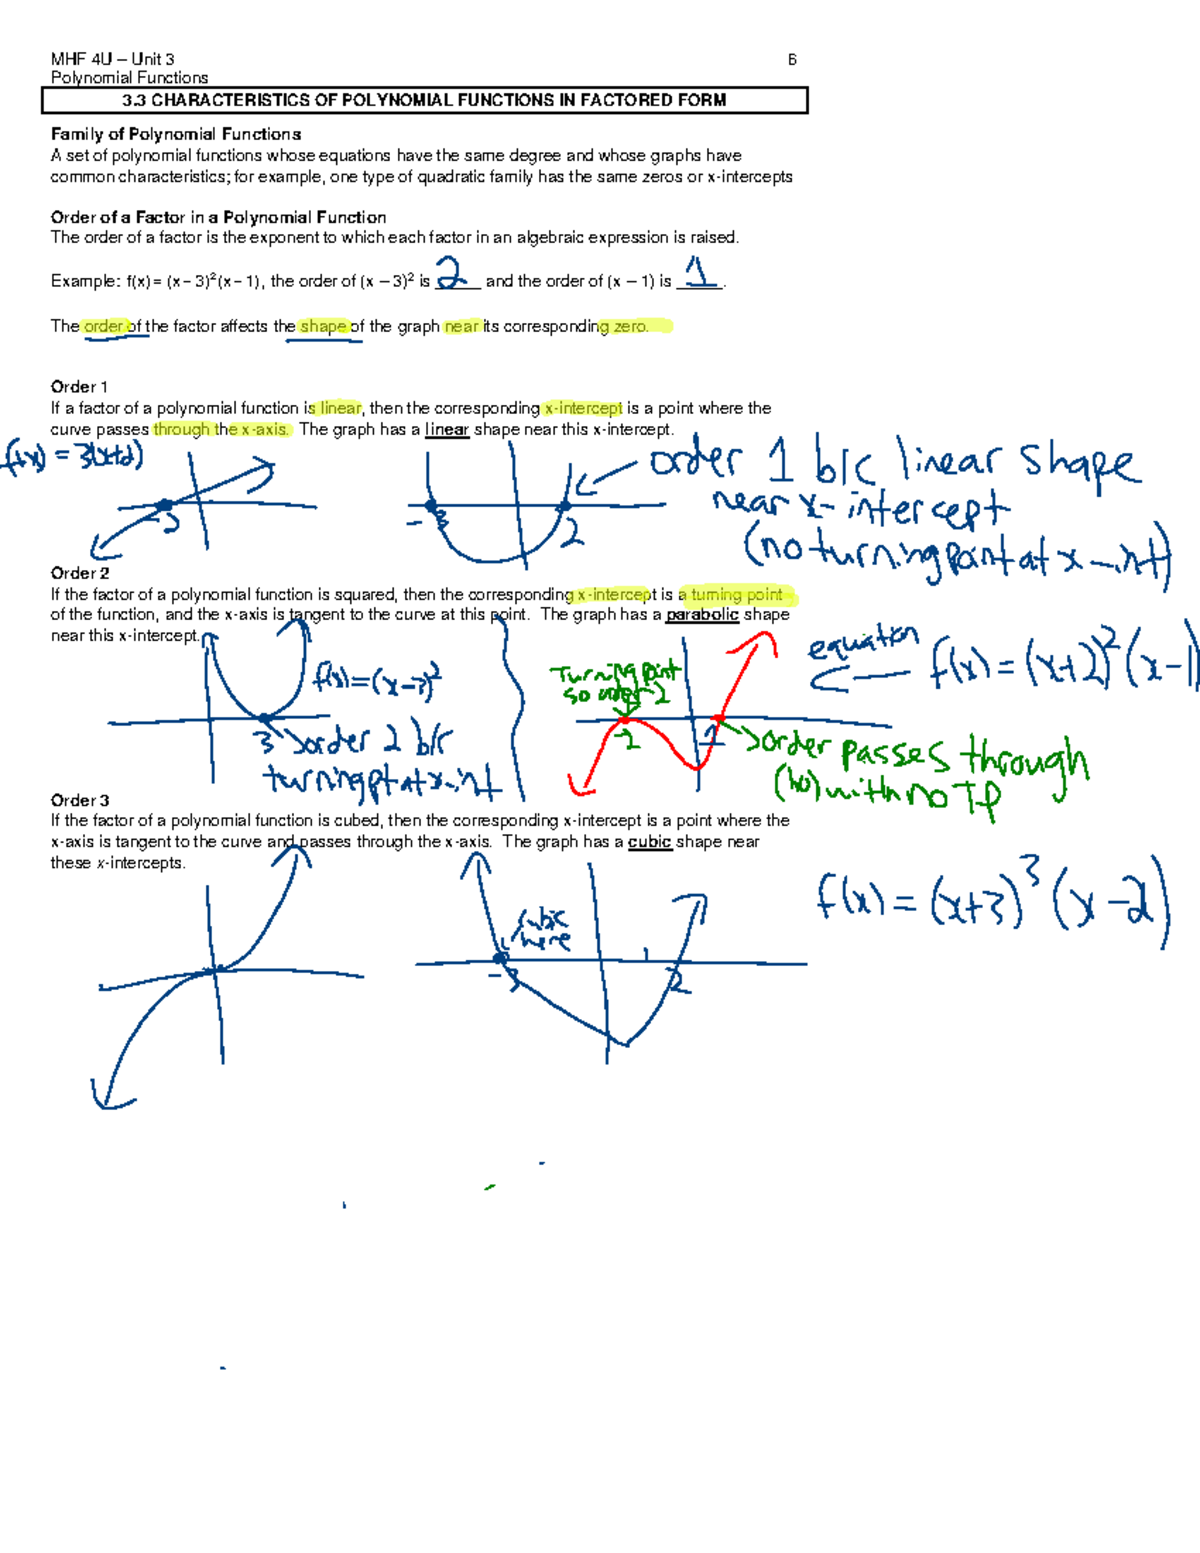 MHF 4U – Unit 3 6
Polynomial Functions
3.3 CHARACTERISTICS OF POLYNOMIAL FUNCTIONS IN FACTORED FORM
Family of Polynomial Functions
A set of polynomial functions whose equations have the same degree and whose graphs have
common characteristics; for example, one type of quadratic family has the same zeros or x-intercepts
Order of a Factor in a Polynomial Function
The order of a factor is the exponent to which each factor in an algebraic expression is raised.
Example: f(x) = (x – 3)²(x – 1), the order of (x – 3)² is 2 and the order of (x – 1) is 1.
The order of the factor affects the shape of the graph near its corresponding zero.
Order 1
If a factor of a polynomial function is linear, then the corresponding x-intercept is a point where the
curve passes through the x-axis. The graph has a linear shape near this x-intercept.
f(x) = 3(x+2)
order 1 b/c linear shape
near x-intercept
(no turning point at x-int)
-2
-3
2
Order 2
If the factor of a polynomial function is squared, then the corresponding x-intercept is a turning point
of the function, and the x-axis is tangent to the curve at this point. The graph has a parabolic shape
near this x-intercept.
equation f(x) = (x+2)²(x-1)
f(x)=(x-3)²
Turning point
so order 2
3 order 2 b/c
turning pt at x-int
-2
1
order passes through
(no) with no TP
Order 3
If the factor of a polynomial function is cubed, then the corresponding x-intercept is a point where the
x-axis is tangent to the curve and passes through the x-axis. The graph has a cubic shape near
these x-intercepts.
f(x) = (x+3)³(x-2)
cubic
here
-3
2